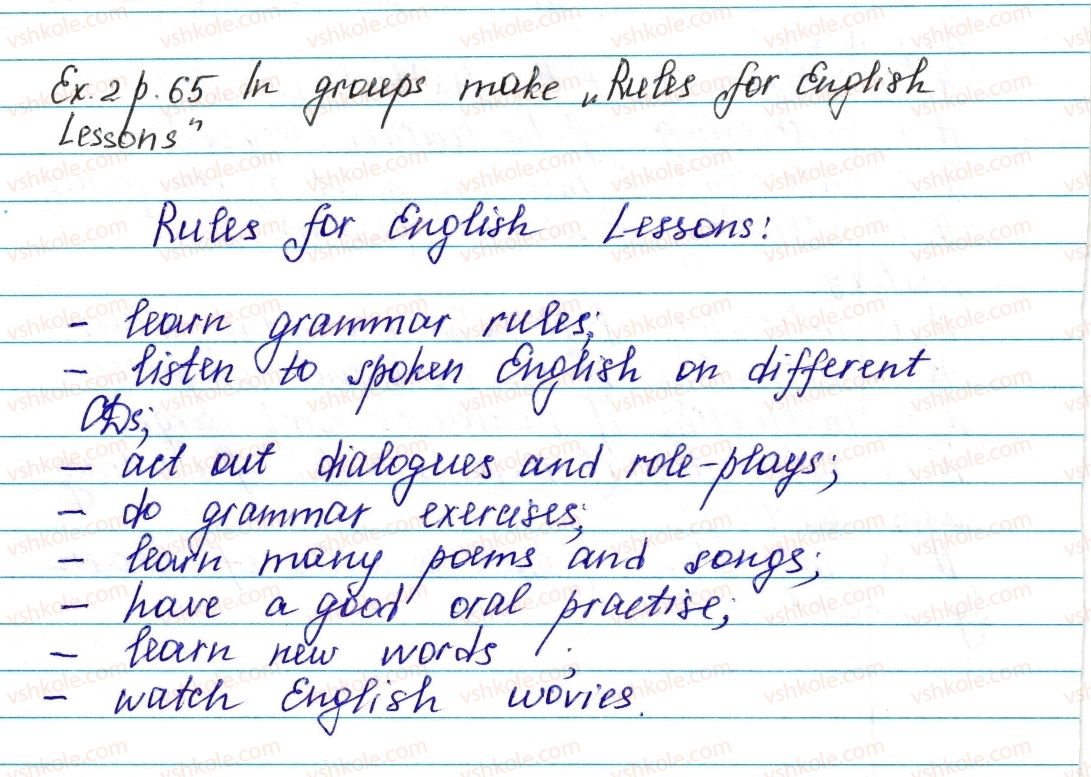 Ex. 2 p. 65 In groups make „Rules for English
Lessons"
Rules for English Lessons:
- learn grammar rules;
- listen to spoken English on different
CDs;
- act out dialogues and role-plays;
- do grammar exercises;
- learn many poems and songs;
- have a good oral practise;
- learn new words ;
- watch English wovies.
vshkole.com